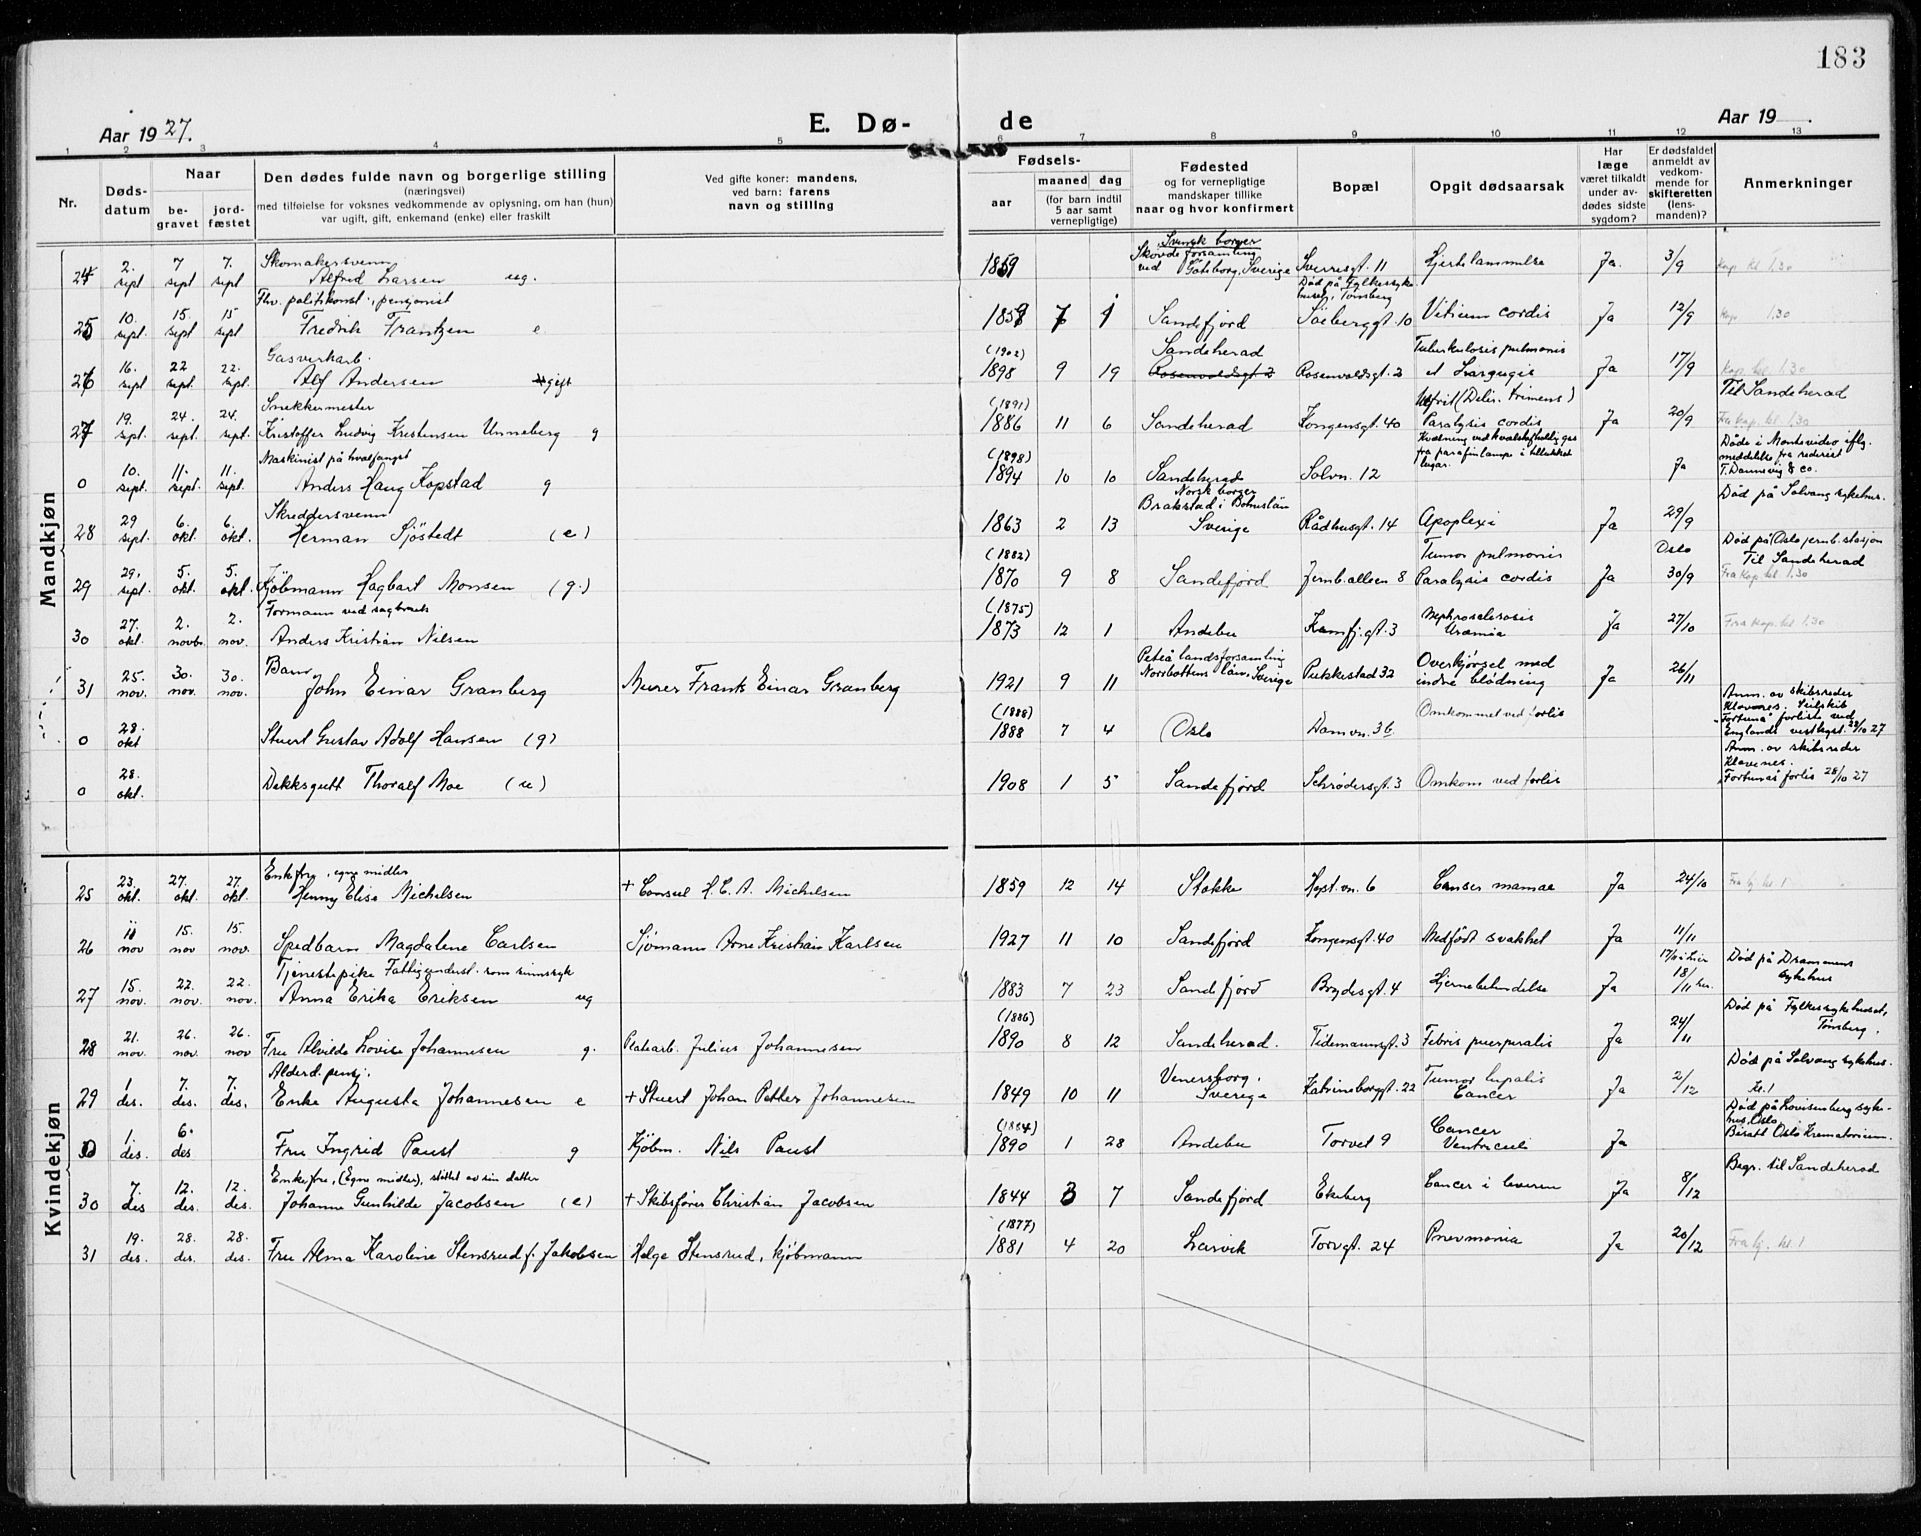 183
Aar 1927.
E. Dø-
de
Aar 19
1 2 3 4 5 6 7 8 9 10 11 12 13
Nr.
Døds-
datum
Naar
be-
gravet
jord-
fæstet
Den dødes fulde navn og borgerlige stilling
(næringsvei)
med tilføielse for voksnes vedkommende av oplysning, om han (hun)
var ugift, gift, enkemand (enke) eller fraskilt
Ved gifte koner: mandens,
ved barn: farens
navn og stilling
Fødsels-
aar
maaned dag
(for barn indtil
5 aar samt
vernepligtige)
Fødested
og for vernepligtige
mandskaper tillike
naar og hvor konfirmert
Bopæl
Opgit dødsaarsak
Har
læge
været tilkaldt
under av-
dødes sidste
sygdom?
Er dødsfaldet
anmeldt av
vedkom-
mende for
skifteretten
(lens-
manden)?
Anmerkninger
Mandkjøn
Skomakersvenn Svensk borger
24 2. sept 7 sept 7. sept Alfred Larsen ug. 1859 Skövde forsamling ved Göteborg, Sverige Sverresgt. 11 Hjertelammelse Ja. 3/9 Kap. kl. 1.30
Fhv. politikonst., pensjonist Død på Fylkessyke huset, Tønsberg
25 10. sept. 15. sept 15 sept Fredrik Frantzen e 1859 7 1 Sandefjord Söeberggt. 10 Vitium cordis Ja 12/9 Kap. 1.30
Gasverkarb. (1902) Sandeherad Tuberkulosis pulmonis
26 16. sept 22 sept 22. sept. Alf Andersen gift 1898 9 19 Rosenvoldsgt 2 Rosenvoldsgt. 2 et Laryngis Ja 17/9 Kap. kl. 1.30
Snekkermester (1891) (Delir. trimens) Til Sandeherad
27 19. sept. 24. sept. 24. sept. Kristoffer Ludvig Kristensen Unneberg g 1886 11 6 Sandeherad Kongensgt. 40 Paralysis cordis Ja 20/9 Fra kap. kl. 1.30
Maskinist på hvalfangst (1898) Kvælning ved kvalstofholdig gas fra parafinlampe i tillukket lugar. Døde i Montevideo iflg. meddelse fra rederiet T. Dannevig & co.
0 10. sept. 11. sept. 11. sept. Anders Haug Kopstad g 1894 10 10 Sandeherad Solvn. 12 Ja
Skreddersvenn Norsk borger Død på Solvang sykehus.
28 29 sept. 6. okt. 6. okt. Herman Sjöstedt (e) 1863 2 13 Brakstad i Bohuslän Sverige Rådhusgt. 14 Apoplexi Ja 29/9
(1882) Tumor pulmonis Oslo Død på Oslo jernb. stasjon Til Sandeherad
29 29. sept. 5. okt 5. okt. Kjöbmann Hagbart Monsen (g.) 1870 9 8 Sandefjord Jernb. alleen 8 Paralysis cordis Ja 30/9 Fra kap. kl. 1.30
Formann ved sagbruk (1875) Nephrosclerosis
30 27. okt. 2. novbr. 2. nov. Anders Kristian Nilsen 1873 12 1 Andebu Kamfj. gt. 3 Uræmia Ja 27/10 Fra kap. kl. 1.30
Barn Piteå landsforsamling Overkjørsel med
31 25 nov. 30. nov. 30. nov. John Einar Granberg Murer Frants Einar Granberg 1921 9 11 Norrbottens län, Sverige Pukkestad 32 indre blødning Ja 26/11
(1888) Anm. av skibsreder Klavenes. Seilskib "Fortuna" forliste ved Englands vestkyst 28/10 27
0 28. okt Stuert Gustav Adolf Hansen (g) 1888 7 4 Oslo Damvn. 36 Omkommet ved forlis
0 28. okt. Dekksgutt Thoralf Moe (u) 1908 1 5 Sandefjord Schrødersgt. 3 Omkom ved forlis Anm. av skibsreder Klavenes. "Fortunas" forlis 28/10 27
Kvindekjøn
Enkefru, egne midler
25 23. okt. 27. okt. 27. okt. Henny Elise Michelsen + Consul H. C. A. Michelsen 1859 12 14 Stokke Hyst. vn. 6 Canser mamae Ja 24/10 Fra hj. kl. 1
26 11 nov 15. nov 15. nov. Spedbarn Magdalene Carlsen Sjömann Arne Kristian Karlsen 1927 11 10 Sandefjord Kongensgt. 40 Medfödt svakhet Ja 11/11
Tjenestepike Fattigunderst. som sinnssyk Død på Drammens sykehus
27 15. nov. 22. nov. 22. nov. Anna Erika Eriksen ug 1883 7 23 Sandefjord Brydesgt. 4 Hjernebetendelse Ja 18/11
(1886) Død på Fylkessykehuset, Tønsberg.
28 21. nov. 26. nov. 26. nov Fru Alvilde Lovise Johannesen g. Platearb. Julius Johannesen 1890 8 12 Sandeherad. Tidemannsgt. 3 Febris puerperalis Ja 24/11
Alderd. pensj. Venersborg. Død på Solvang sykehus. Kl. 1
29 1 des. 7. des. 7. des. Enke Augusta Johannesen e + Stuert Johan Petter Johannesen 1849 10 11 Sverige Katrineborggt. 22 Tumor hepatis Cancer Ja 2/12
(1884) Død på Lovisenberg sykehus, Oslo. Bisatt Oslo Krematorium.
0 1. des. 6. des Fru Ingrid Paust g Kjöbm. Nils Paust 1890 1 28 Andebu Torvet 9 Cancer Ventriculi Ja
Enkefru, (Egne midler), støttet av sin datter Begr. til Sandeherad
30 7. des 12. des. 12. des. Johanne Gunhilde Jacobsen (e) + Skibsfører Christian Jacobsen 1844 3 7 Sandefjord Ekeberg Cancer i leveren Ja 8/12
(1877)
31 19. des. 28. des. 28. des. Fru Alma Karoline Stensrud f. Jakobsen Helge Stensrud, kjöbmann 1881 4 20 Larvik Torvgt. 24 Pnevmonia Ja 20/12 Fra hj. kl. 1